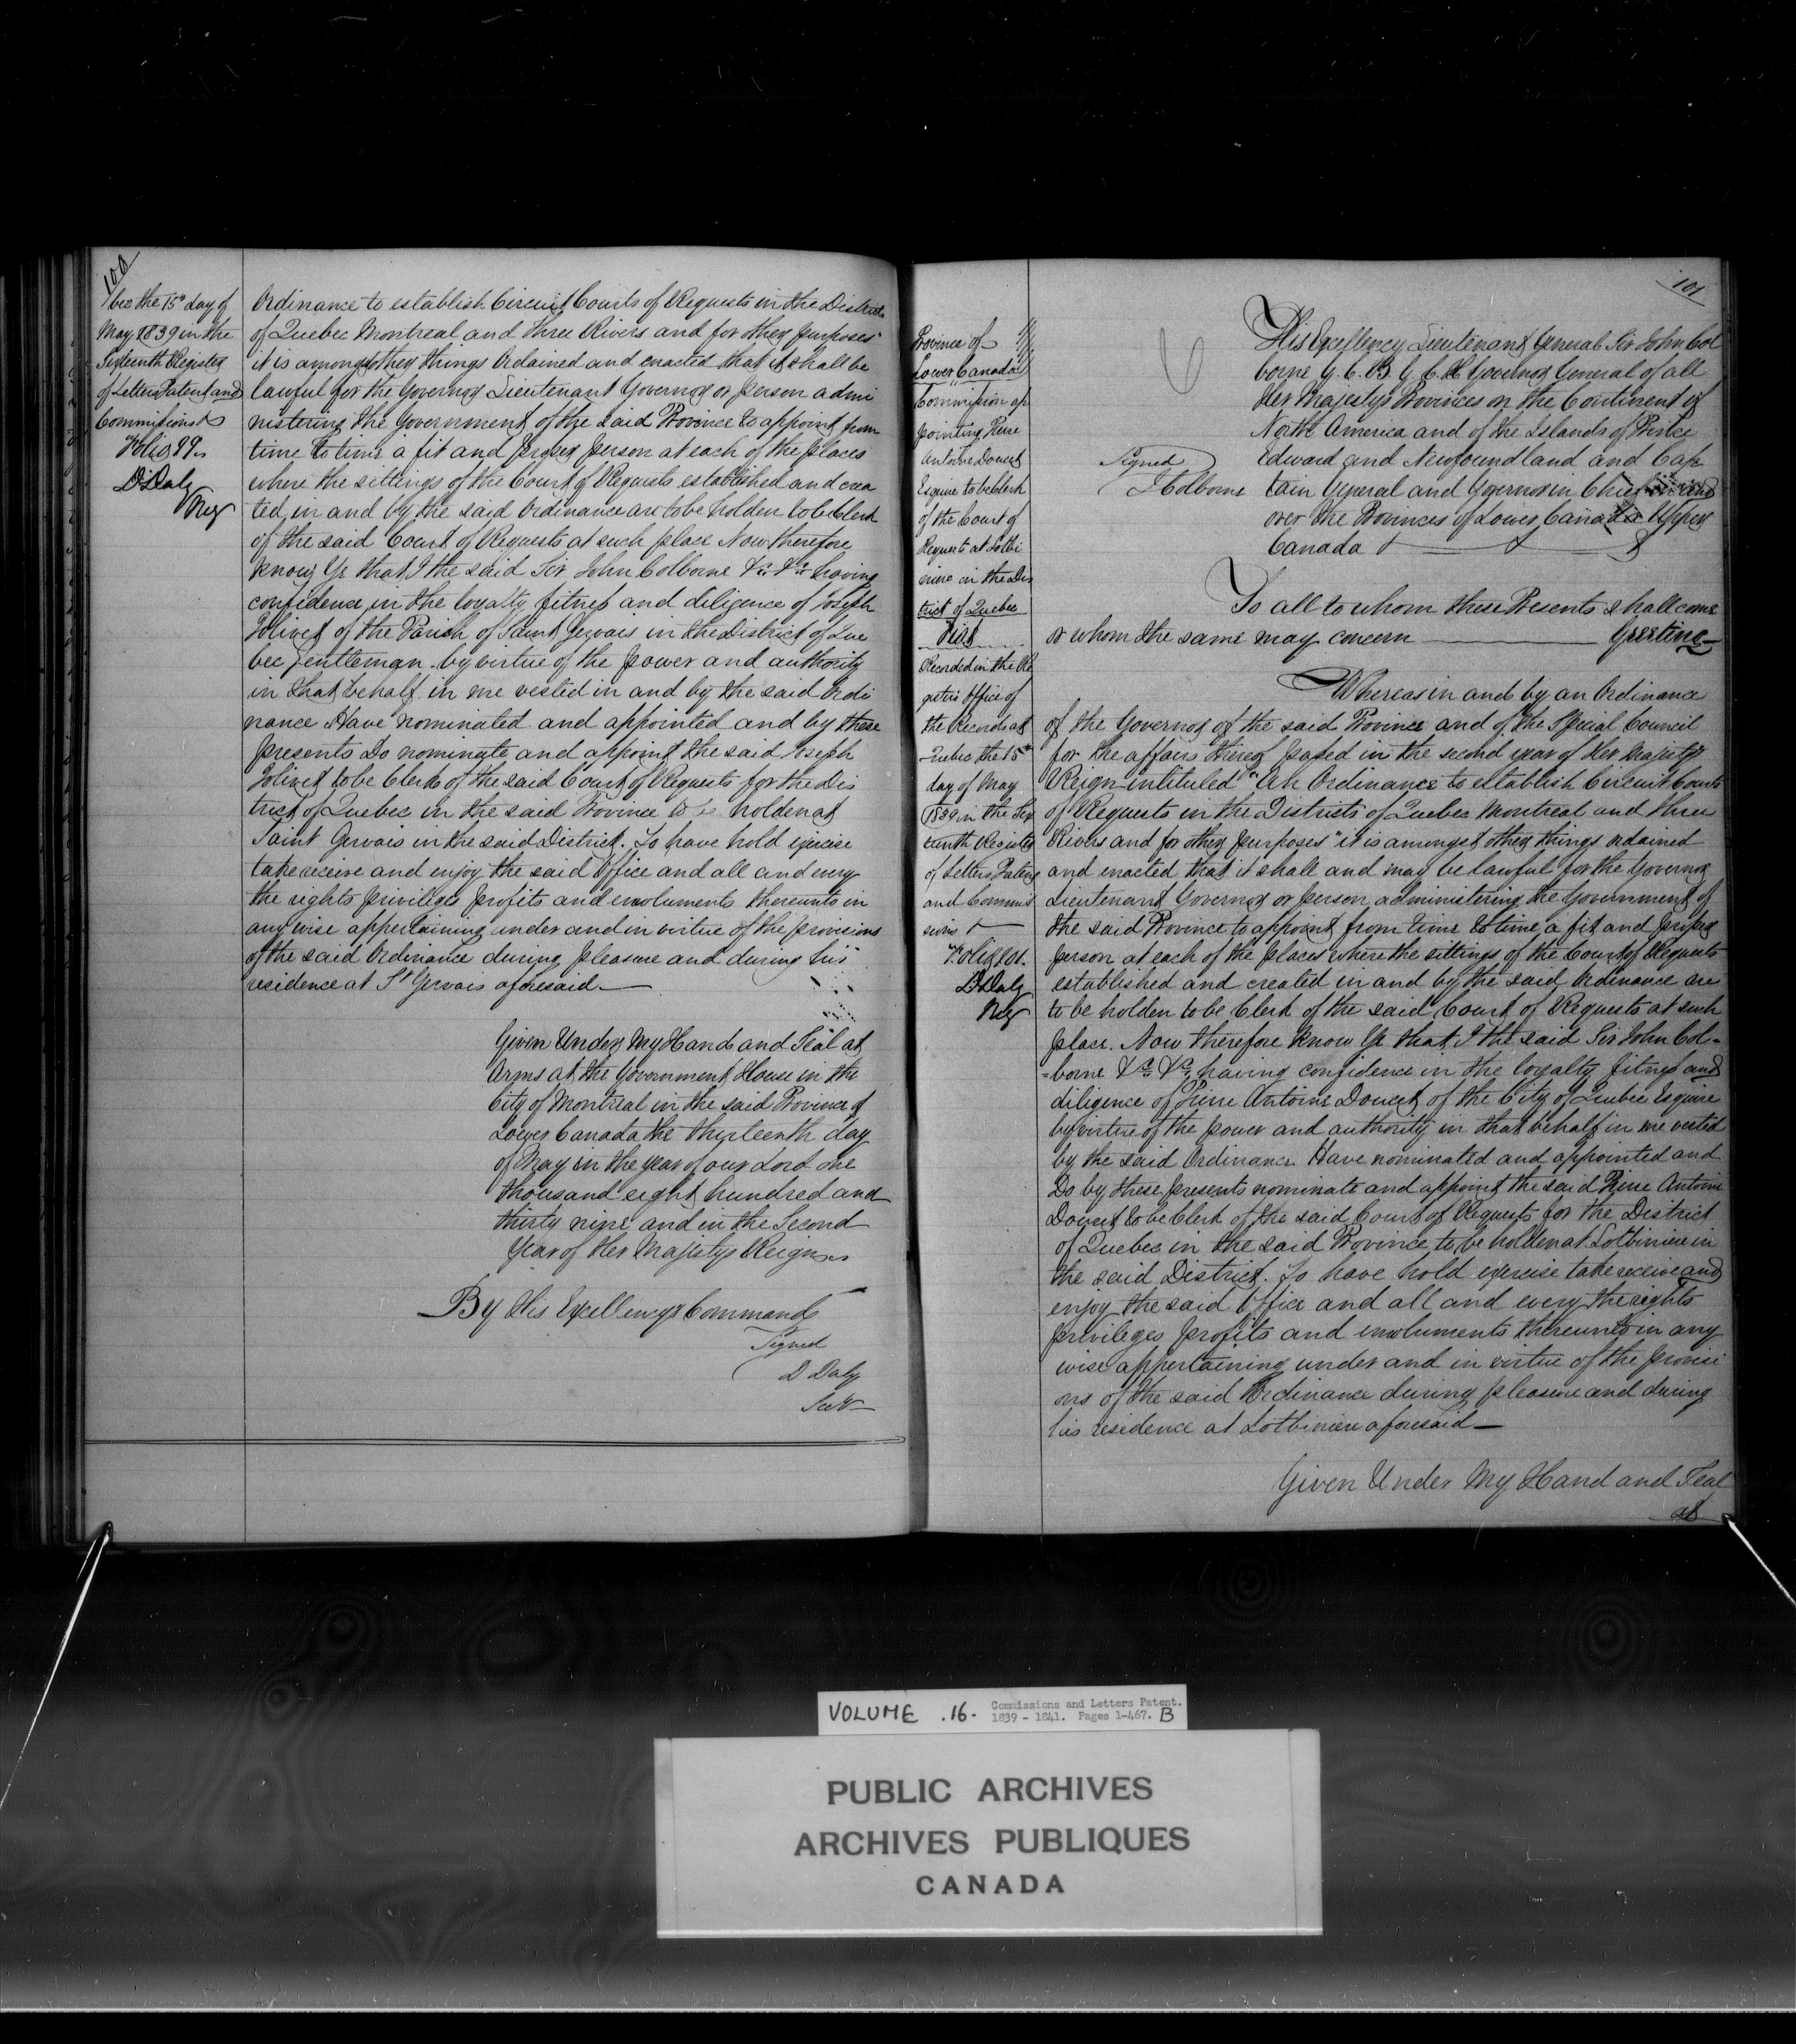 100
bec the 15th day of
May 1839 in the
Sixteenth Register
of Letters Patent and
Commissions
Folio 99.
D Daly
Reg
Ordinance to establish Circuit Courts of Requests in the Districts
of Quebec Montreal and Three Rivers and for other purposes
it is amongst other things Ordained and enacted that it shall be
lawful for the Governor Lieutenant Governor or person admi
nistering the Government of the said Province to appoint from
time to time a fit and proper person at each of the places
where the sittings of the Court of Requests established and crea
ted in and by the said Ordinance are to be holden to be Clerk
of the said Court of Requests at such place Now therefore
know Ye that I the said Sir John Colborne &c &c having
confidence in the loyalty fitness and diligence of Joseph
Jolivet of the Parish of Saint Gervais in the District of Que
bec gentleman by virtue of the power and authority
in that behalf in me vested in and by the said Ordi
nance Have nominated and appointed and by these
presents Do nominate and appoint the said Joseph
Jolivet to be Clerk of the said Court of Requests for the Dis
trict of Quebec in the said Province to be holden at
Saint Gervais in the said District. To have hold exercise
take receive and enjoy the said Office and all and every
the rights privileges profits and emoluments thereunto in
any wise appertaining under and in virtue of the provisions
of the said Ordinance during pleasure and during his
residence at St Gervais aforesaid
Given Under My Hand and Seal at
Arms at the Government House in the
City of Montreal in the said Province of
Lower Canada the thirteenth day
of May in the year of our Lord one
thousand eight hundred and
thirty nine and in the Second
Year of Her Majestys Reign
By His Excellencys Command
Signed
D Daly
Secy
101
Province of
Lower Canada
Commission ap
pointing Pierre
Antoine Doucet
Esquire to be Clerk
of the Court of
Requests at Lotbi
niere in the Dis
trict of Quebec
Fiat
Recorded in the Re
gistrs Office of
the Records at
Quebec the 15th
day of May
1839 in the Six
teenth Register
of Letters Patent
and Commis
sions
Folio 101.
D Daly
Reg
His Excellency Lieutenant General Sir John Col
borne G.C.B. G.C.H. Governor General of all
Her Majestys Provinces on the Continent of
North America and of the Islands of Prince
Signed
J Colborne
Edward and Newfoundland and Cap
tain General and Governor in Chief
over the Provinces of Lower Canada Upper
Canada
To all to whom these Presents shall come
or whom the same may concern Greeting
Whereas in and by an Ordinance
of the Governor of the said Province and of the Special Council
for the affairs thereof passed in the second year of Her Majestys
Reign intituled "An Ordinance to establish Circuit Courts
of Requests in the Districts of Quebec Montreal and Three
Rivers and for other purposes" it is amongst other things ordained
and enacted that it shall and may be lawful for the Governor
Lieutenant Governor or person administering the Government of
the said Province to appoint from time to time a fit and proper
person at each of the places where the sittings of the Court of Requests
established and created in and by the said Ordinance are
to be holden to be Clerk of the said Court of Requests at such
place. Now therefore know Ye that I the said Sir John Col=
=borne &c &c having confidence in the loyalty fitness and
diligence of Pierre Antoine Doucet of the City of Quebec Esquire
by virtue of the power and authority in that behalf in me vested
by the said Ordinance Have nominated and appointed and
Do by these presents nominate and appoint the said Pierre Antoine
Doucet to be Clerk of the said Court of Requests for the District
of Quebec in the said Province to be holden at Lotbiniere in
the said District. To have hold exercise take receive and
enjoy the said Office and all and every the rights
privileges profits and emoluments thereunto in any
wise appertaining under and in virtue of the provisi
ons of the said Ordinance during pleasure and during
his residence at Lotbiniere aforesaid
Given Under My Hand and Seal
at
VOLUME .16. Commissions and Letters Patent.
1839 - 1841. Pages 1-467. B
PUBLIC ARCHIVES
ARCHIVES PUBLIQUES
CANADA